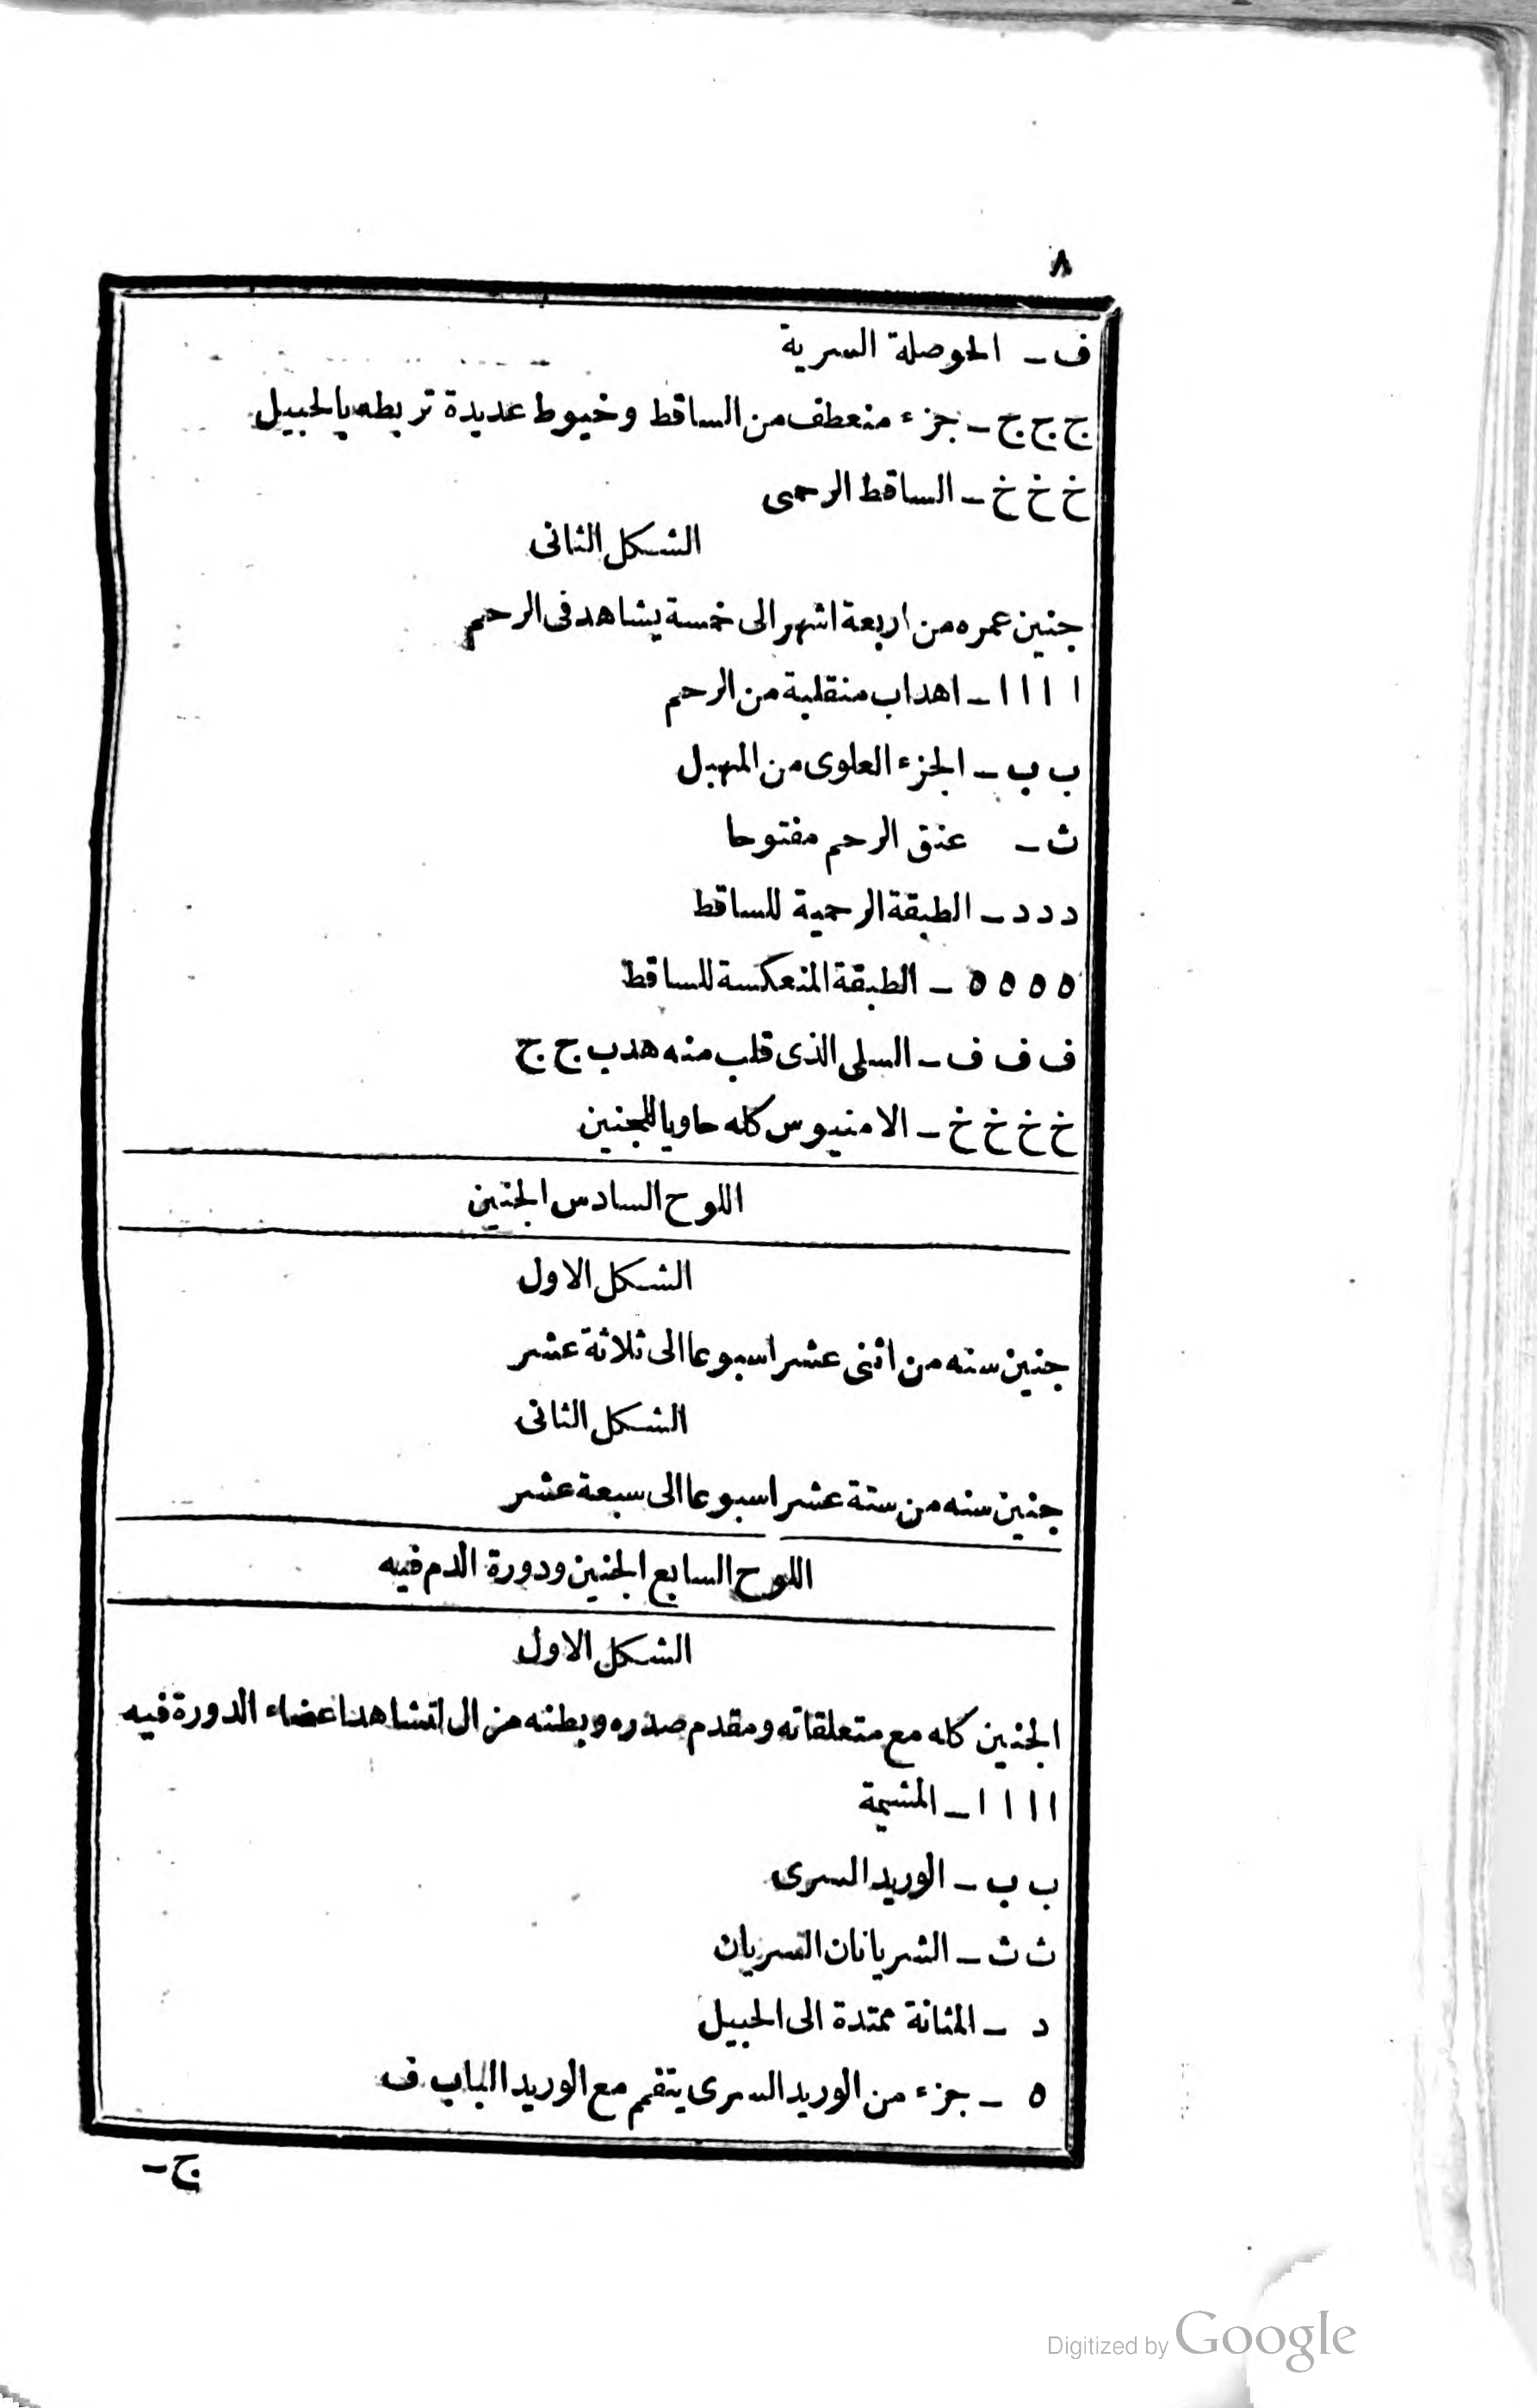 ٨
ف ـ الحوصلة السرية
ج ج ج ـ جزء منعطف من الساقط وخيوط عديدة تربطه بالحبيل
خ خ خ ـ الساقط الرحمى
الشكل الثانى
جنين عمره من اربعة اشهر الى خمسة يشاهد فى الرحم
ا ا ا ا ـ اهداب منقلبة من الرحم
ب ب ـ الجزء العلوى من المهبل
ث ـ عنق الرحم مفتوحا
د د د ـ الطبقة الرحمية للساقط
ه ه ه ه ـ الطبقة المنعكسة للساقط
ف ف ف ـ السلى الذى قلب منه هدب ج ج
خ خ خ خ ـ الامنيوس كله حاويا للجنين
اللوح السادس الجنين
الشكل الاول
جنين سنه من اثنى عشر اسبوعا الى ثلاثة عشر
الشكل الثانى
جنين سنه من ستة عشر اسبوعا الى سبعة عشر
اللوح السابع الجنين ودورة الدم فيه
الشكل الاول
الجنين كله مع متعلقاته ومقدم صدره وبطنه مزال لتشاهد اعضاء الدورة فيه
ا ا ا ا ـ المشيمة
ب ب ـ الوريد السرى
ث ث ـ الشريانان السريان
د ـ المثانة ممتدة الى الحبيل
ه ـ جزء من الوريد السرى يتفمم مع الوريد الباب ف
ج ـ
Digitized by Google